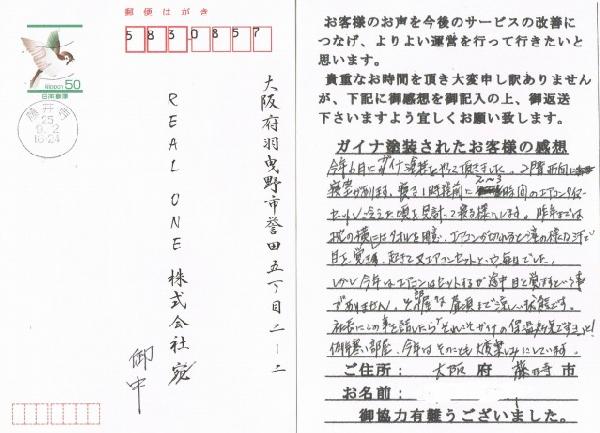 郵便はがき
5830857
NIPPON 50
日本郵便
藤井寺
25.
9. 2
16-24
大阪府羽曳野市誉田五丁目二ー二
REAL ONE 株式会社宛
御中
お客様のお声を今後のサービスの改善に
つなげ、よりよい運営を行って行きたいと
思います。
貴重なお時間を頂き大変申し訳ありません
が、下記に御感想を御記入の上、御返送
下さいますよう宜しくお願い致します。
ガイナ塗装されたお客様の感想
今年6月にガイナ塗装をやって頂きました。2階西向に
寝室があります。寝る1時間前に2〜3時間のエアコンタイマー
セットし冷えた頃を見計って寝る様にします。昨年までは
枕の横にはタオルを用意、エアコンが切れると滝の様な汗で
目を覚まし、起きて又エアコンセットという毎日でした。
しかし今年はエアコンはセットするが途中目を覚ますという事
がありません。昼頃まで涼しい状態です。
社長にこの事を話したら"それこそガイナの保温効果ですヨと!
部屋、今年はそのことも大変楽しみにしています。
ご住所: 大阪府 藤井寺市
お名前:
御協力有難うございました。